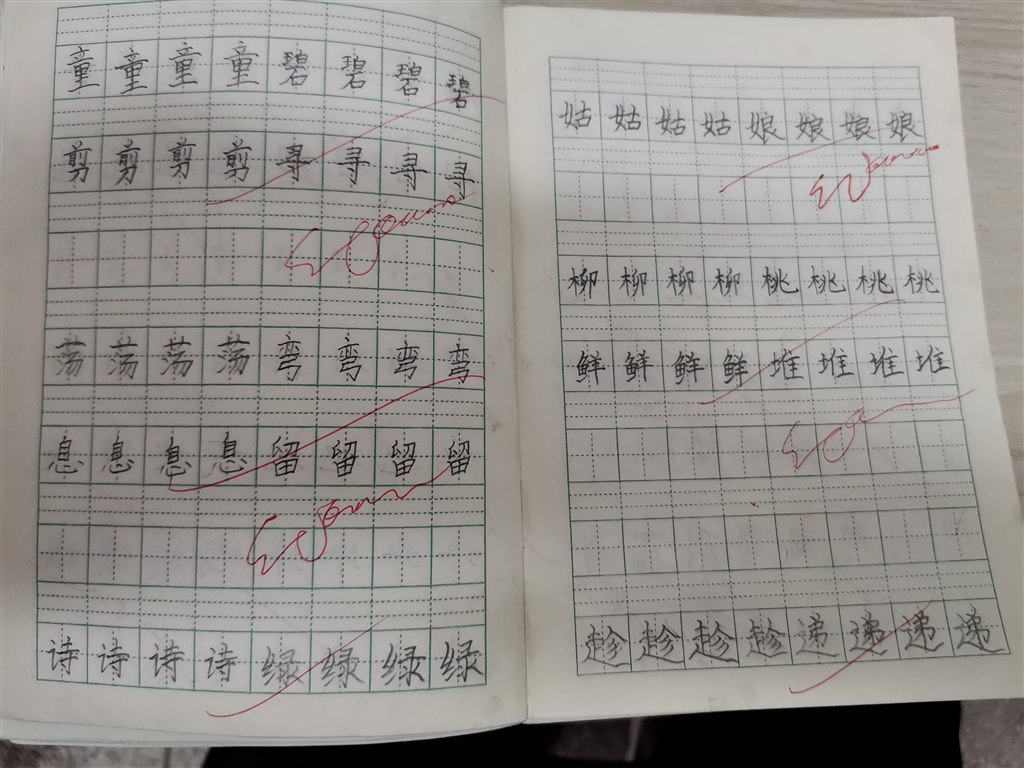 童童童童碧碧碧碧
剪剪剪剪寻寻寻寻
荡荡荡荡弯弯弯弯
息息息息留留留留
诗诗诗诗绿绿绿绿
姑姑姑姑娘娘娘娘
柳柳柳柳桃桃桃桃
鲜鲜鲜鲜堆堆堆堆
趁趁趁趁递递递递